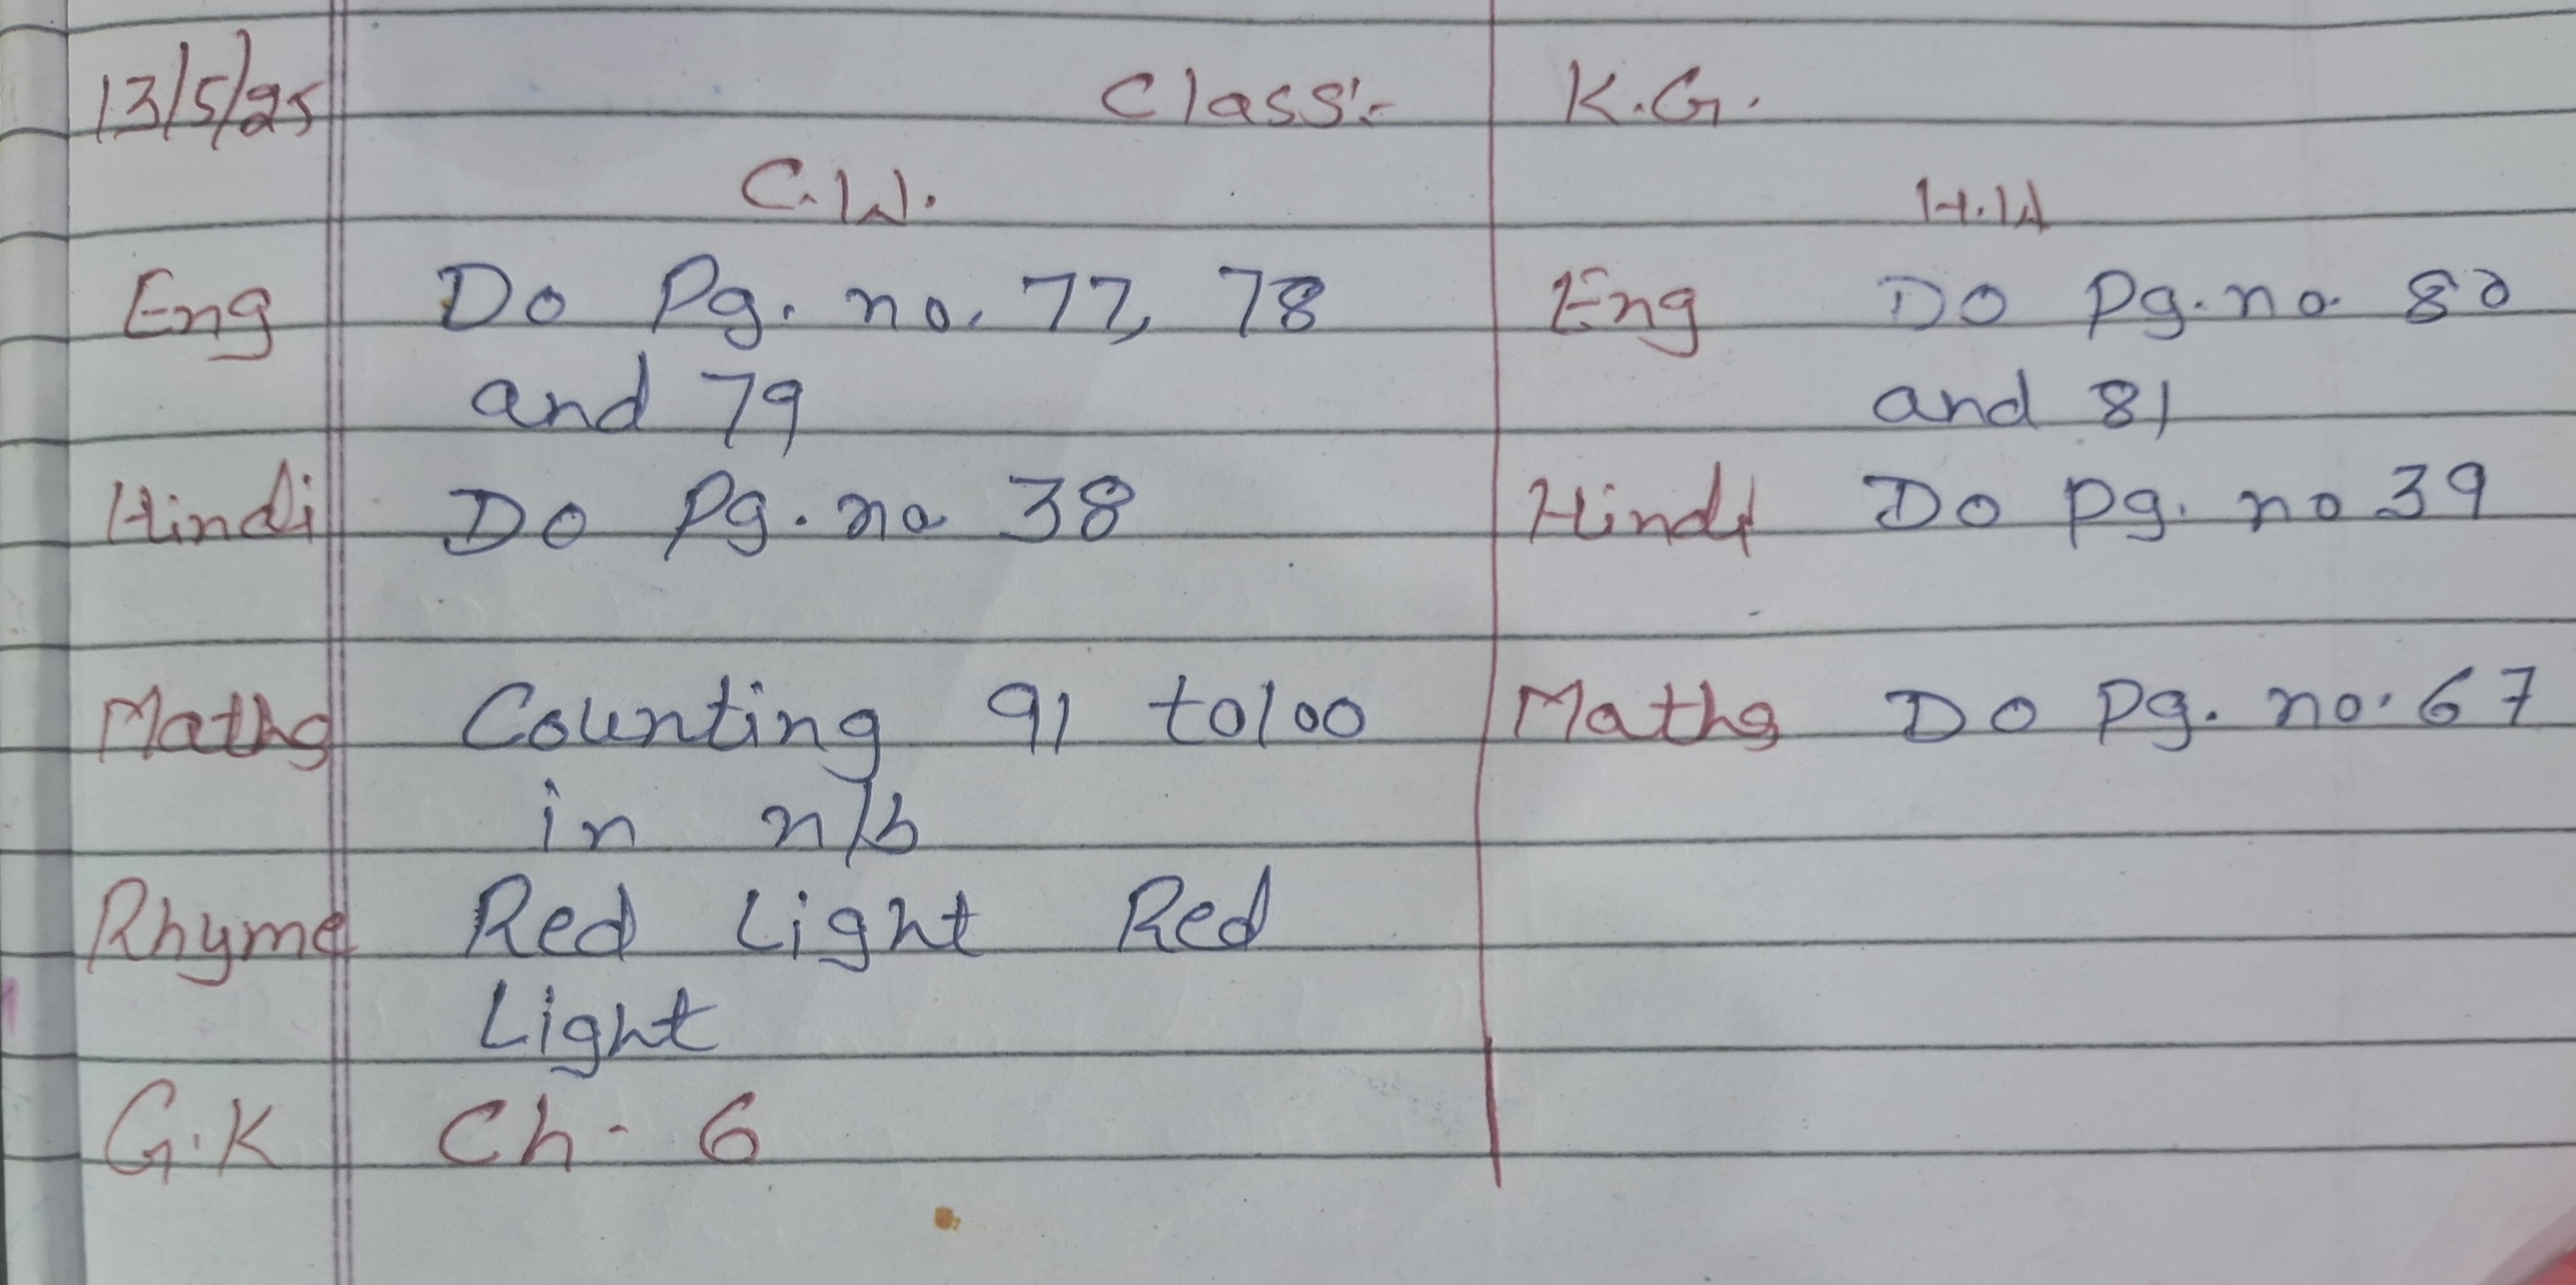 13/5/25 Class:- K.G.
C.W. H.W
Eng Do Pg. no. 77, 78 Eng Do Pg. no. 80
and 79 and 81
Hindi Do Pg. no 38 Hindi Do Pg. no 39
Maths Counting 91 to 100 Maths Do Pg. no. 67
in n/b
Rhyme Red Light Red
Light
G.K Ch - 6